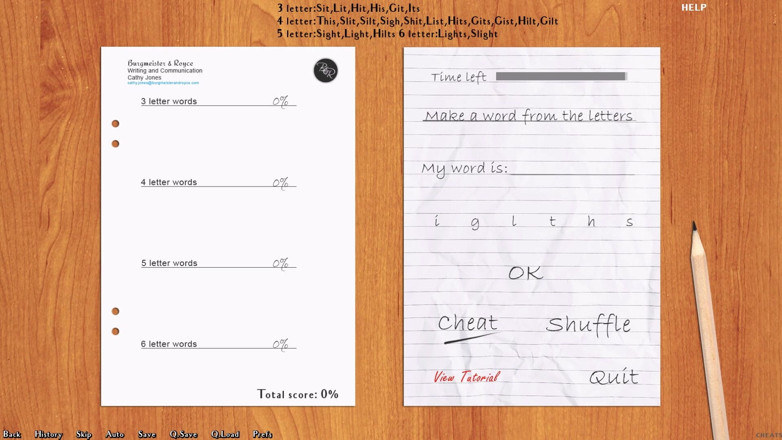 3 letter:Sit,Lit,Hit,His,Git,Its
4 letter:This,Slit,Silt,Sigh,Shit,List,Hits,Gits,Gist,Hilt,Gilt
5 letter:Sight,Light,Hilts 6 letter:Lights,Slight
HELP
Burgmeister & Royce
Writing and Communication
Cathy Jones
cathy.jones@burgmeisterandroyce.com
B&R
3 letter words 0%
4 letter words 0%
5 letter words 0%
6 letter words 0%
Total score: 0%
Time left
Make a word from the letters
My word is:
i g l t h s
OK
Cheat Shuffle
View Tutorial Quit
Back History Skip Auto Save Q.Save Q.Load Prefs